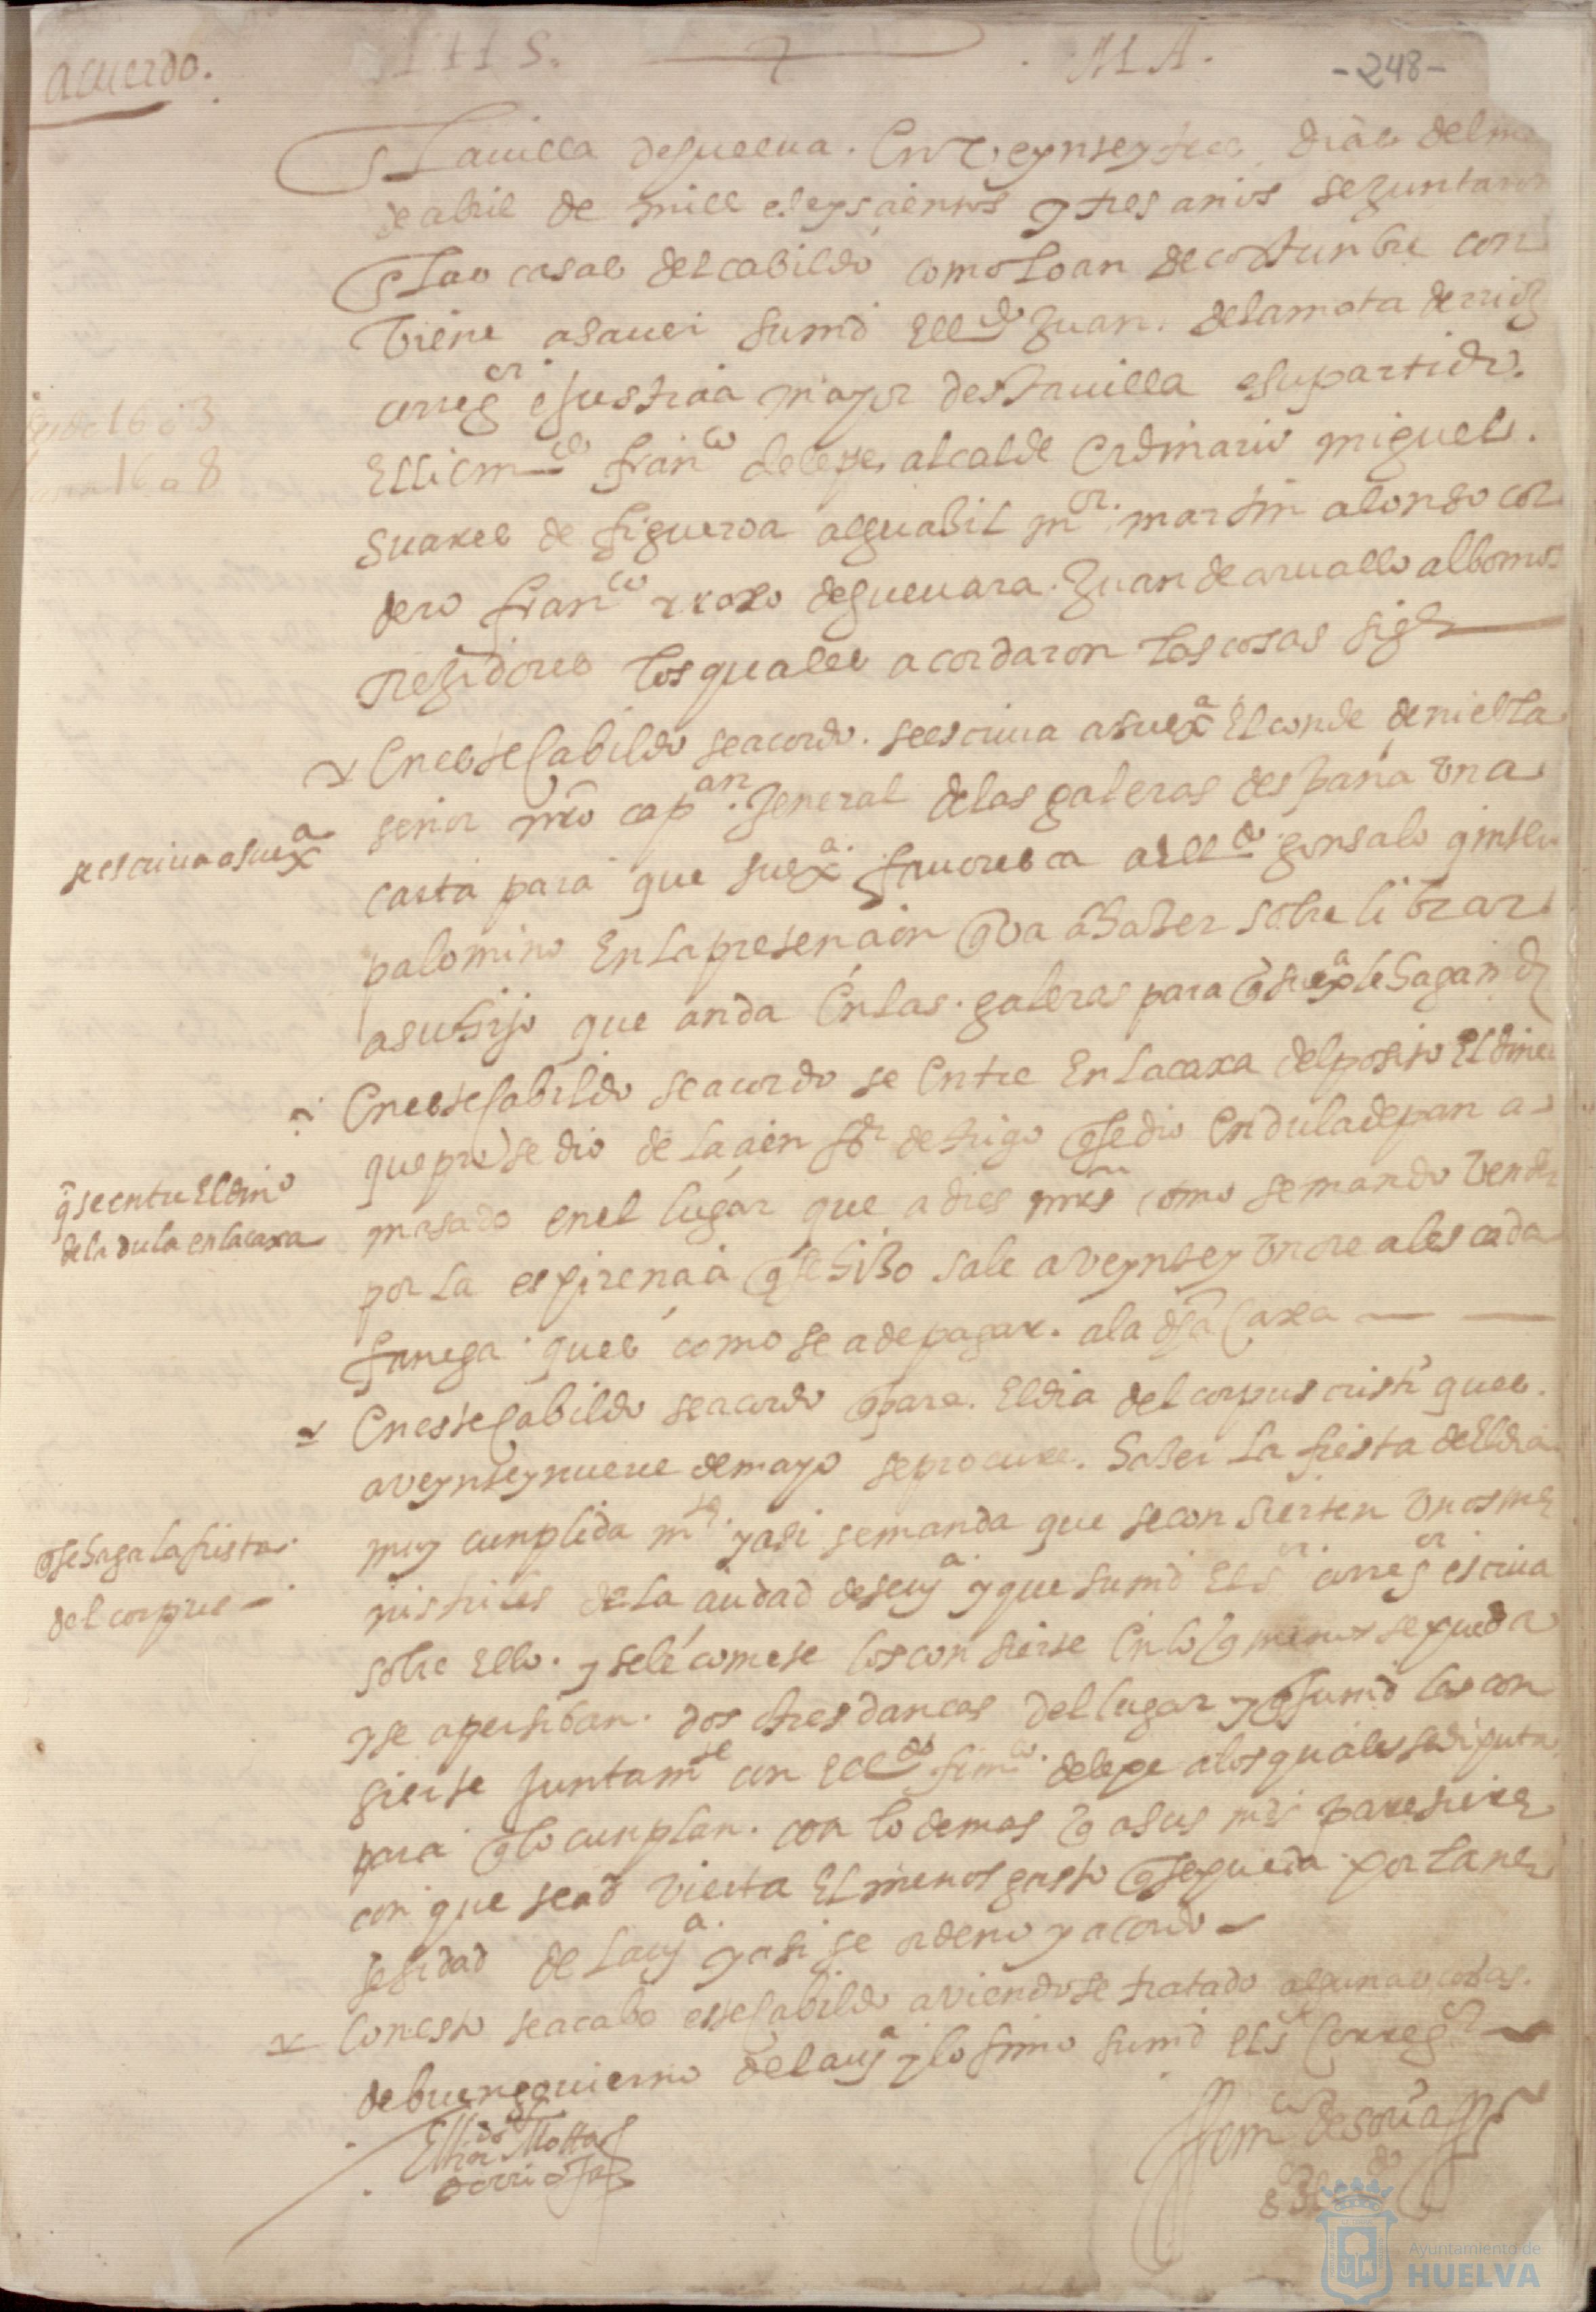 acuerdo.
IHS. MA.
-248-
En la uilla de guelua. En veynte y tres dias del mes
de abril de mill e seysçientos y tres años se juntaron
En las casas del cabildo como lo an de costunbre con
viene a sauer su md el l.do Juan. de la mota derrio
correg.or e justiçia mayor desta uilla e su partido.
El liçen.do fran.co de lepe, alcalde Ordinario miguel.
suares de figueroa alguasil m.or martin alonso cor
dero fran.co rroxo de gueuara. Juan de aruallo albornos
rregidores los quales acordaron las cosas sig.es
En este Cabildo se acordo. se escriua a su ex.a El conde de niebla
señor nro cap.an General de las galeras despaña vna
carta para que su ex.a fauoresca al l.do gonsalo
palomino En la pretençion q va a haser sobre librar
a su hijo que anda En las galeras para q su ex.a le haga
se escriua a su ex.a
En este Cabildo se acordo se Entre En la caxa del posito El dine
que prosedio de la çien de trigo q se dio En dula de pan a
masado en el lugar que a dies mrs como se mando vender
por la espirençia q se hiso sale a veynte y vn reales cada
fanega ques como se a de pagar. a la dha Caxa
q se entre El dinº
de la dula en la caxa
En este Cabildo se acordo q para. El dia del corpus cristi ques.
a veynte y nueue de mayo se procure. haser la fiesta del dia
muy cunplida m.te y asi se manda que se consierten vnos me
nistriles de la çiudad de seu.a y que su md El s.or correg.or escriua
sobre Ello. y se le comete los consierte En lo q menos se pueda
y se aperçiban. dos o tres danças del lugar y q su md las con
sierte juntam.te con el l.do fran.co de lepe a los quales se diputa
para q lo cunplan. con lo demas q a sus mds paresiere
con que se advierta El menos gasto q se pueda por la ne
sesidad de la uª y asi se ordeno y acordo
q se haga la fiesta
del corpus
Con esto se acabo este Cabildo aviendose tratado algunas cosas.
de buen gouierno de la uª y lo firmo su md El s.or Correg.or
El l.do Motta
derrio
Ayuntamiento de
HUELVA